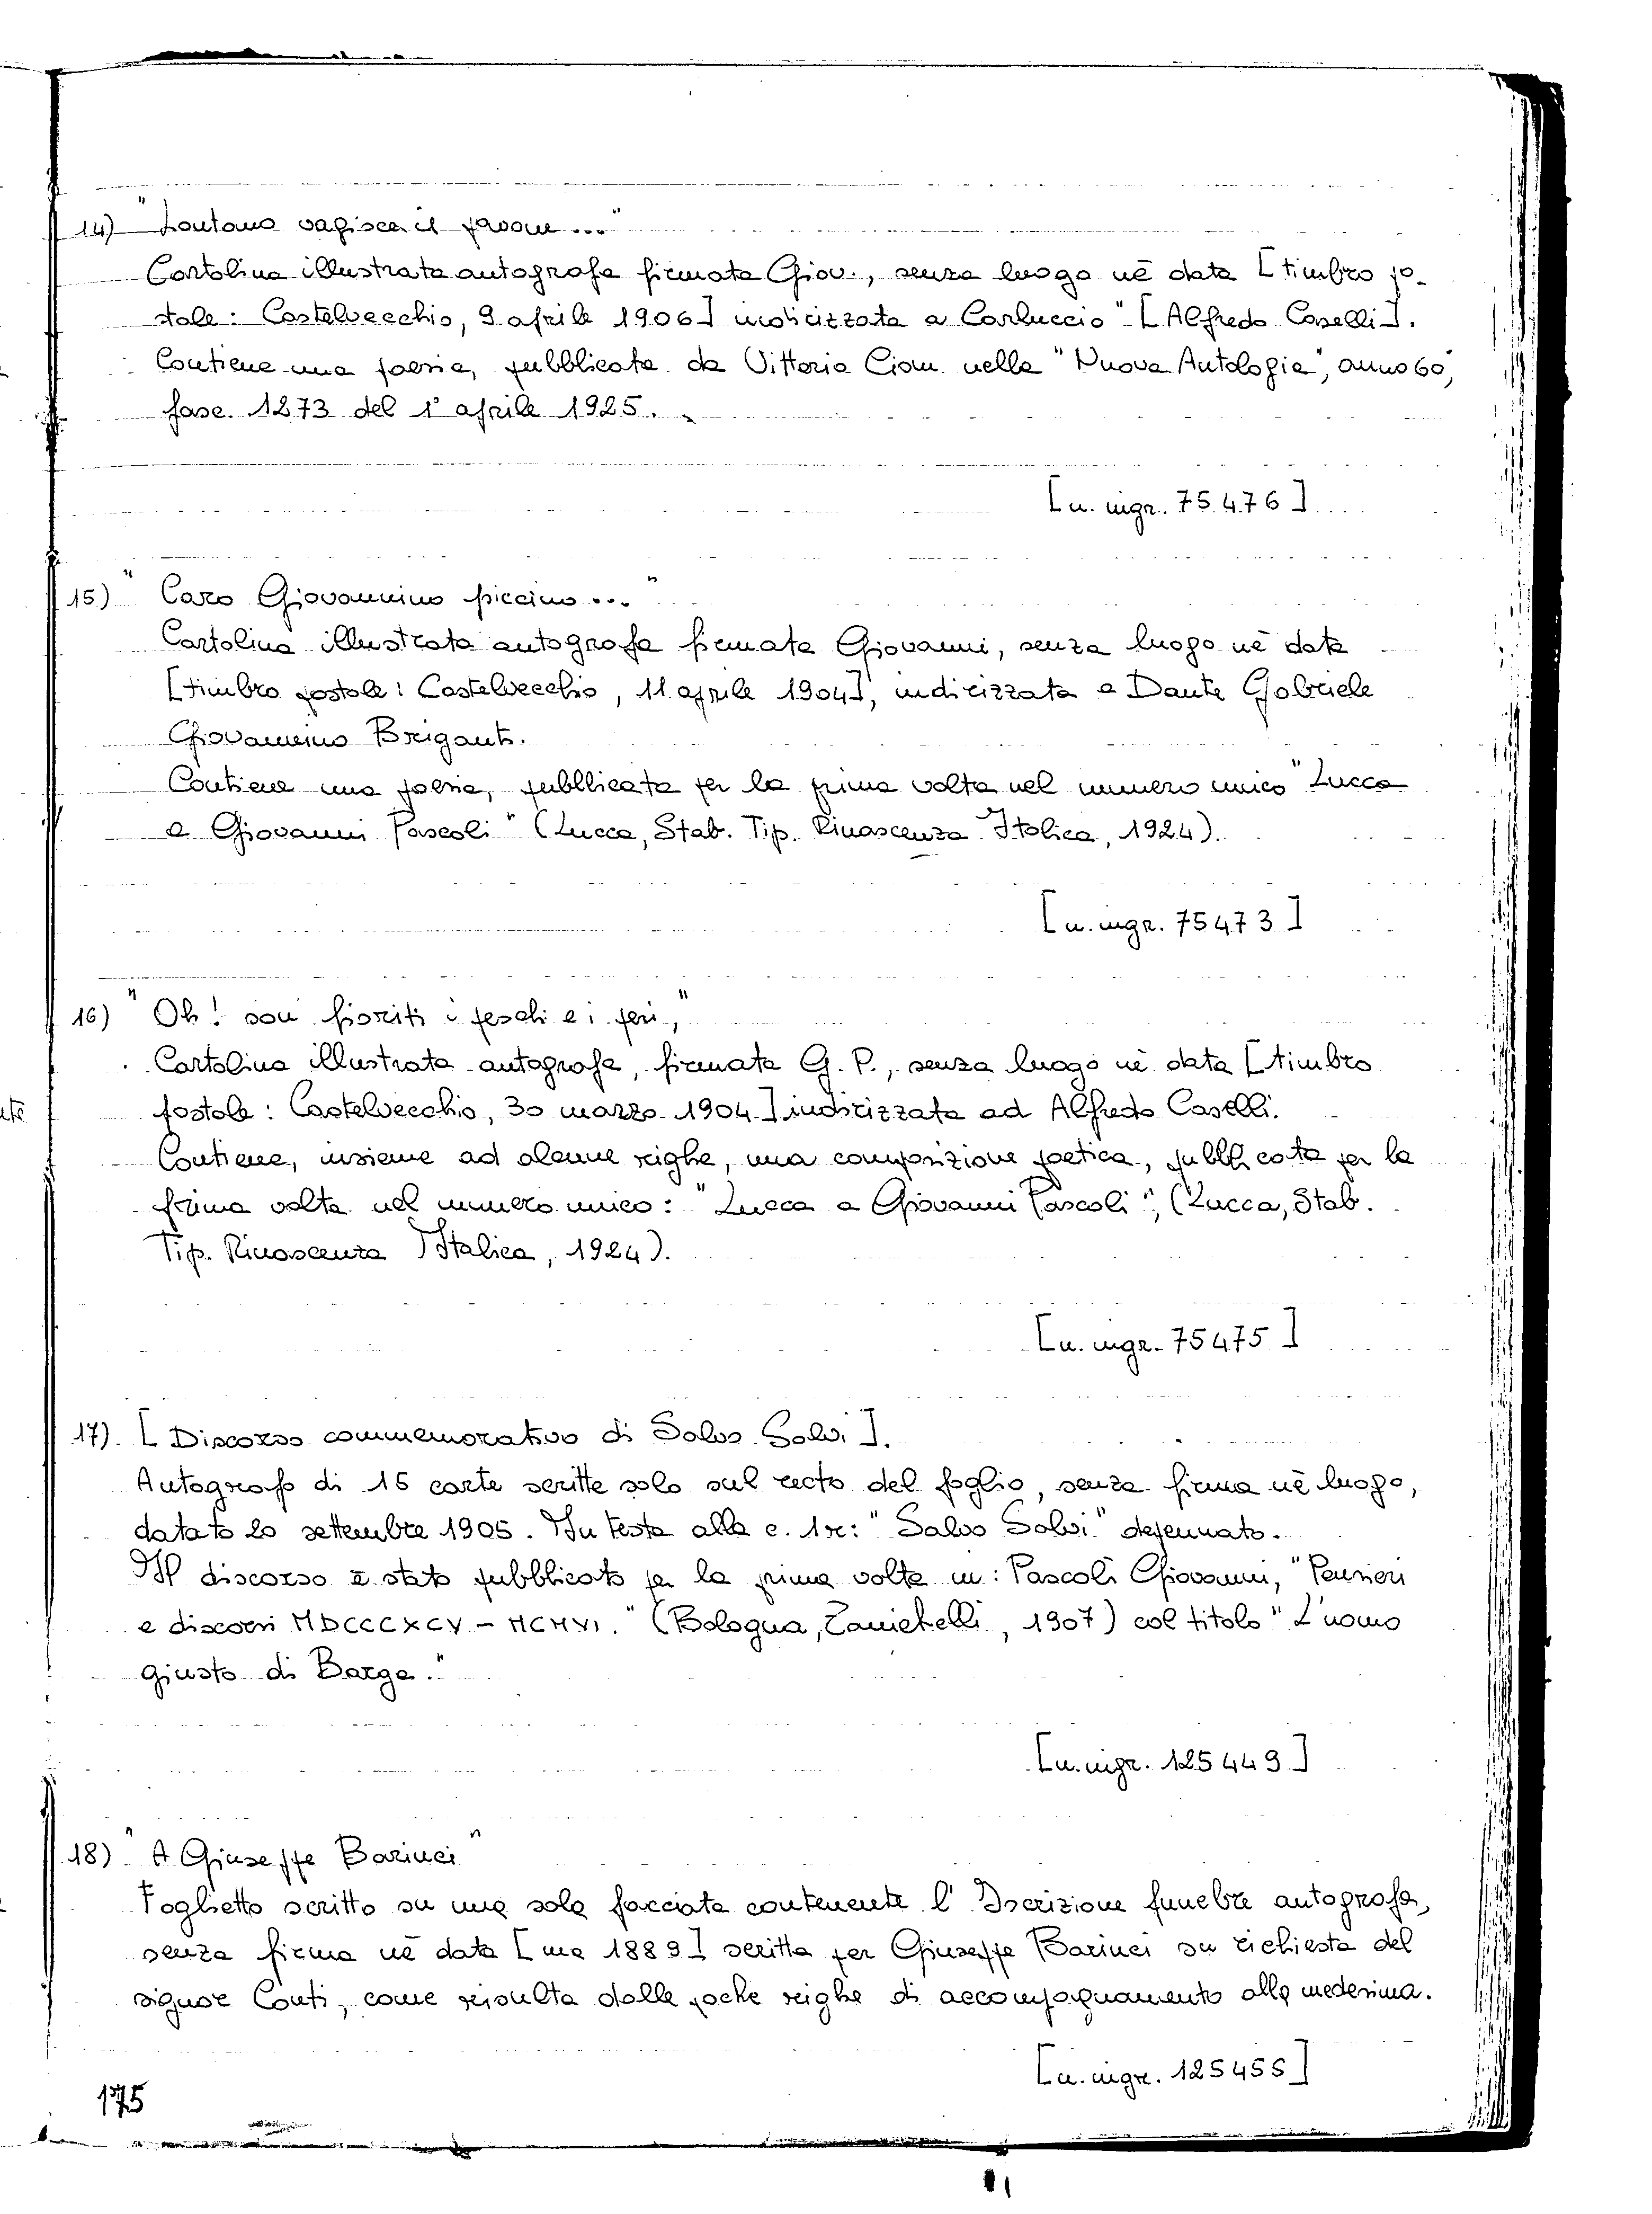 14) "Lontano vagisce il pavone..."
Cartolina illustrata autografa firmata Giov., senza luogo nè data [timbro po-
stale: Castelvecchio, 9 aprile 1906] indirizzata a Carluccio" [Alfredo Caselli].
Contiene una poesia, pubblicata da Vittorio Cian nella "Nuova Antologia", anno 60°,
fasc. 1273 del 1° aprile 1925.
[n. ingr. 75476]
15) "Caro Giovannino piccino..."
Cartolina illustrata autografa firmata Giovanni, senza luogo nè data
[timbro postale: Castelvecchio, 11 aprile 1904], indirizzata a Dante Gabriele
Giovannino Briganti.
Contiene una poesia, pubblicata per la prima volta nel numero unico "Lucca
a Giovanni Pascoli" (Lucca, Stab. Tip. Rinascenza Italica, 1924).
[n. ingr. 75473]
16) "Oh! son fioriti i peschi e i peri,"
Cartolina illustrata autografa, firmata G. P., senza luogo nè data [timbro
postale: Castelvecchio, 30 marzo 1904] indirizzata ad Alfredo Caselli.
Contiene, insieme ad alcune righe, una composizione poetica, pubblicata per la
prima volta nel numero unico: "Lucca a Giovanni Pascoli", (Lucca, Stab.
Tip. Rinascenza Italica, 1924).
[n. ingr. 75475]
17) [Discorso commemorativo di Salvo Salvi].
Autografo di 15 carte scritte solo sul recto del foglio, senza firma nè luogo,
datato 20 settembre 1905. In testa alla c. 1r: "Salvo Salvi" depennato.
Il discorso è stato pubblicato per la prima volta in: Pascoli Giovanni, "Pensieri
e discorsi MDCCCXCV - MCMVI." (Bologna, Zanichelli, 1907) col titolo "L'uomo
giusto di Barga."
[n. ingr. 125449]
18) "A Giuseppe Barinci"
Foglietto scritto su una sola facciata contenente l'Iscrizione funebre autografa,
senza firma nè data [ma 1889] scritta per Giuseppe Barinci su richiesta del
signor Conti, come risulta dalle poche righe di accompagnamento alla medesima.
[n. ingr. 125455]
175